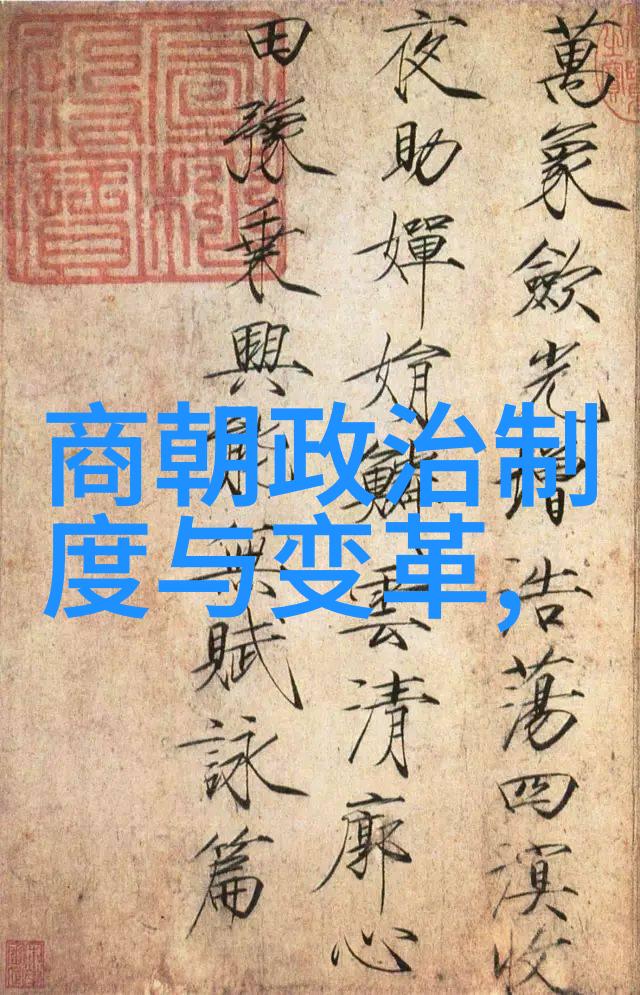 商朝政治制
度与变革,
萬象歛光增浩蕩四溟收
夜助嬋娟鱗雲清廓心
田豫乗興能無賦詠篇